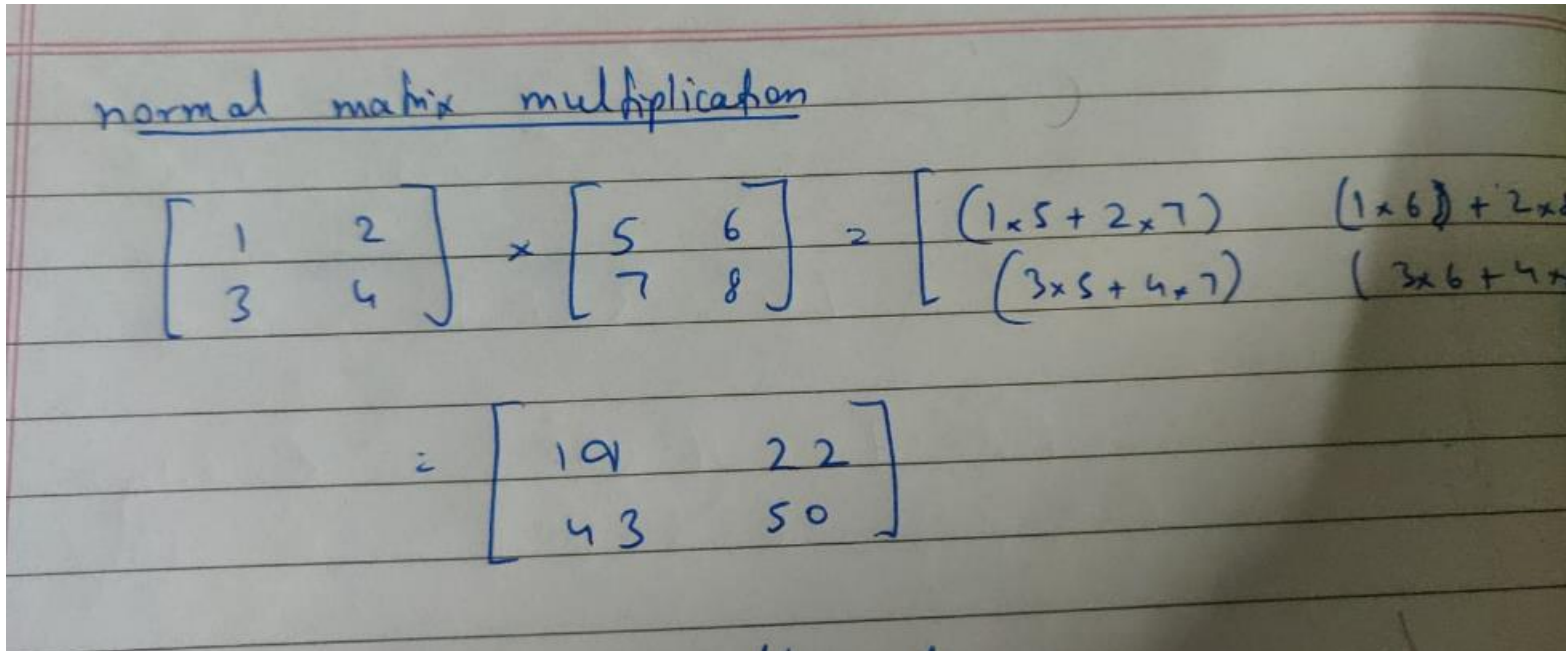 normal matrix multiplication
[ 1 2 ] × [ 5 6 ] = [ (1×5 + 2×7) (1×6) + 2×
[ 3 4 ] [ 7 8 ] [ (3×5 + 4×7) ( 3×6 + 4×
= [ 19 22 ]
[ 43 50 ]